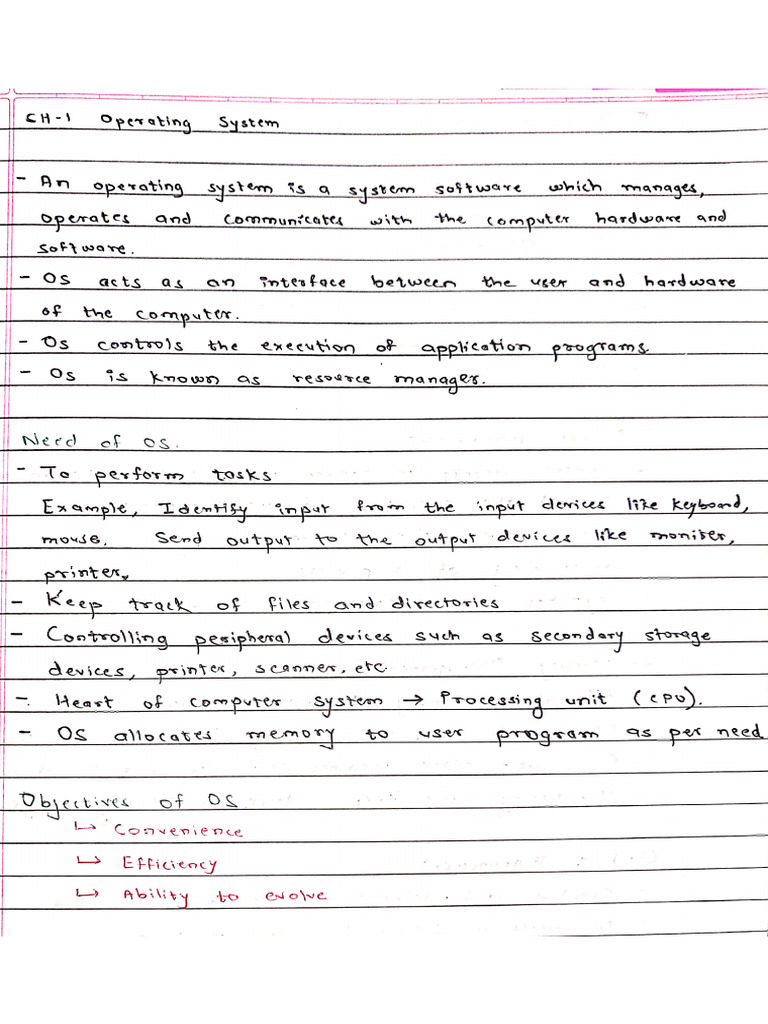 CH-1 Operating System
- An operating system is a system software which manages,
operates and communicates with the computer hardware and
software.
- OS acts as an interface between the user and hardware
of the computer.
- Os controls the execution of application programs
- Os is known as resource manager.
Need of OS.
- To perform tasks
Example, Identify input from the input devices like keyboard,
mouse. Send output to the output devices like moniter,
printer,
- Keep track of files and directories
- Controlling peripheral devices such as secondary storage
devices, printer, scanner, etc.
- Heart of computer system → Processing unit (CPU).
- OS allocates memory to user program as per need
Objectives of OS
↳ Convenience
↳ Efficiency
↳ Ability to evolve